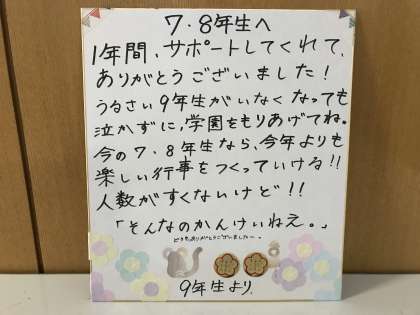 7・8年生へ
1年間、サポートしてくれて、
ありがとうございました！
うるさい9年生がいなくなっても
泣かずに、学園をもりあげてね。
今の7・8年生なら、今年よりも
楽しい行事をつくっていける!!
人数がすくないけど!!
「そんなのかんけいねえ。」
どうもありがとうございましたー。
9年生より